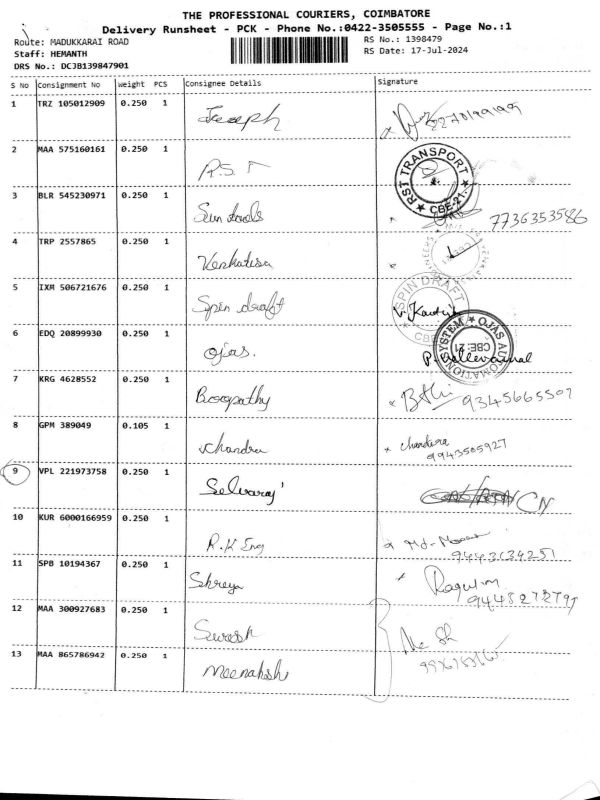 THE PROFESSIONAL COURIERS, COIMBATORE
Delivery Runsheet - PCK - Phone No.:0422-3505555 - Page No.:1
Route: MADUKKARAI ROAD RS No.: 1398479
Staff: HEMANTH RS Date: 17-Jul-2024
DRS No.: DCJB139847901
S No Consignment No Weight PCS Consignee Details Signature
1 TRZ 105012909 0.250 1 Joseph
2 MAA 575160161 0.250 1 R.S.T RST TRANSPORT CBE-21.
3 BLR 545230971 0.250 1 Sun tools 7736353586
4 TRP 2557865 0.250 1 Venkatesa
5 IXM 506721676 0.250 1 Spin draft SPIN DRAFT V. Karthik
6 EDQ 20899930 0.250 1 Ojas. OJAS AUTOMATION SYSTEM CBE-21
7 KRG 4628552 0.250 1 Boopathy
8 GPM 389049 0.105 1 Chandru Chandira
9943505927
9 VPL 221973758 0.250 1 Selvaraj CN
10 KUR 6000166959 0.250 1 R.K Eng
11 SPB 10194367 0.250 1 Shreya Ragul.m
12 MAA 300927683 0.250 1 Suresh
13 MAA 865786942 0.250 1 Meenaksh